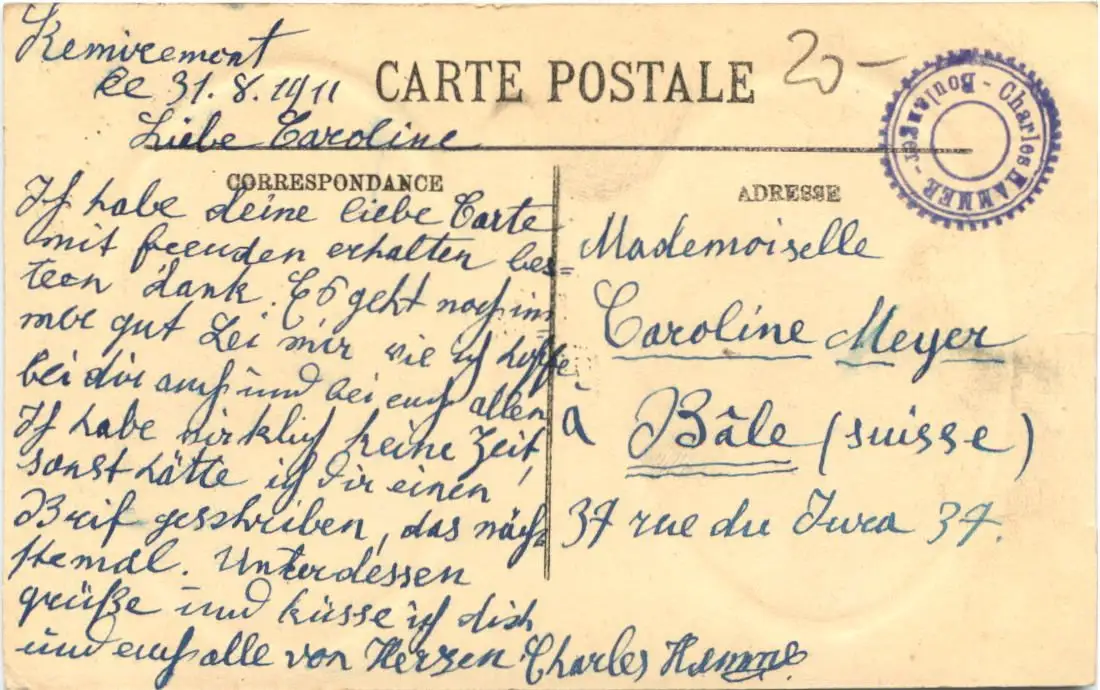 Remiremont
le 31. 8. 1911
CARTE POSTALE
20-
Charles HAMMER - Boulanger -
Liebe Caroline
CORRESPONDANCE
Ich habe deine liebe Carte
mit freuden erhalten bes=
teen dank. Es geht noch im
mer gut bei mir wie ich hoffe
bei dir auch und bei euch allen
Ich habe wirklich keine Zeit,
sonst hätte ich dir einen
Breif geschriben, das näch=
stemal. Unterdessen
grüße und küsse ich dich
und euch alle von Herzen Charles Hammer
ADRESSE
Mademoiselle
Caroline Meyer
à Bâle (suisse)
37 rue du Jura 37.